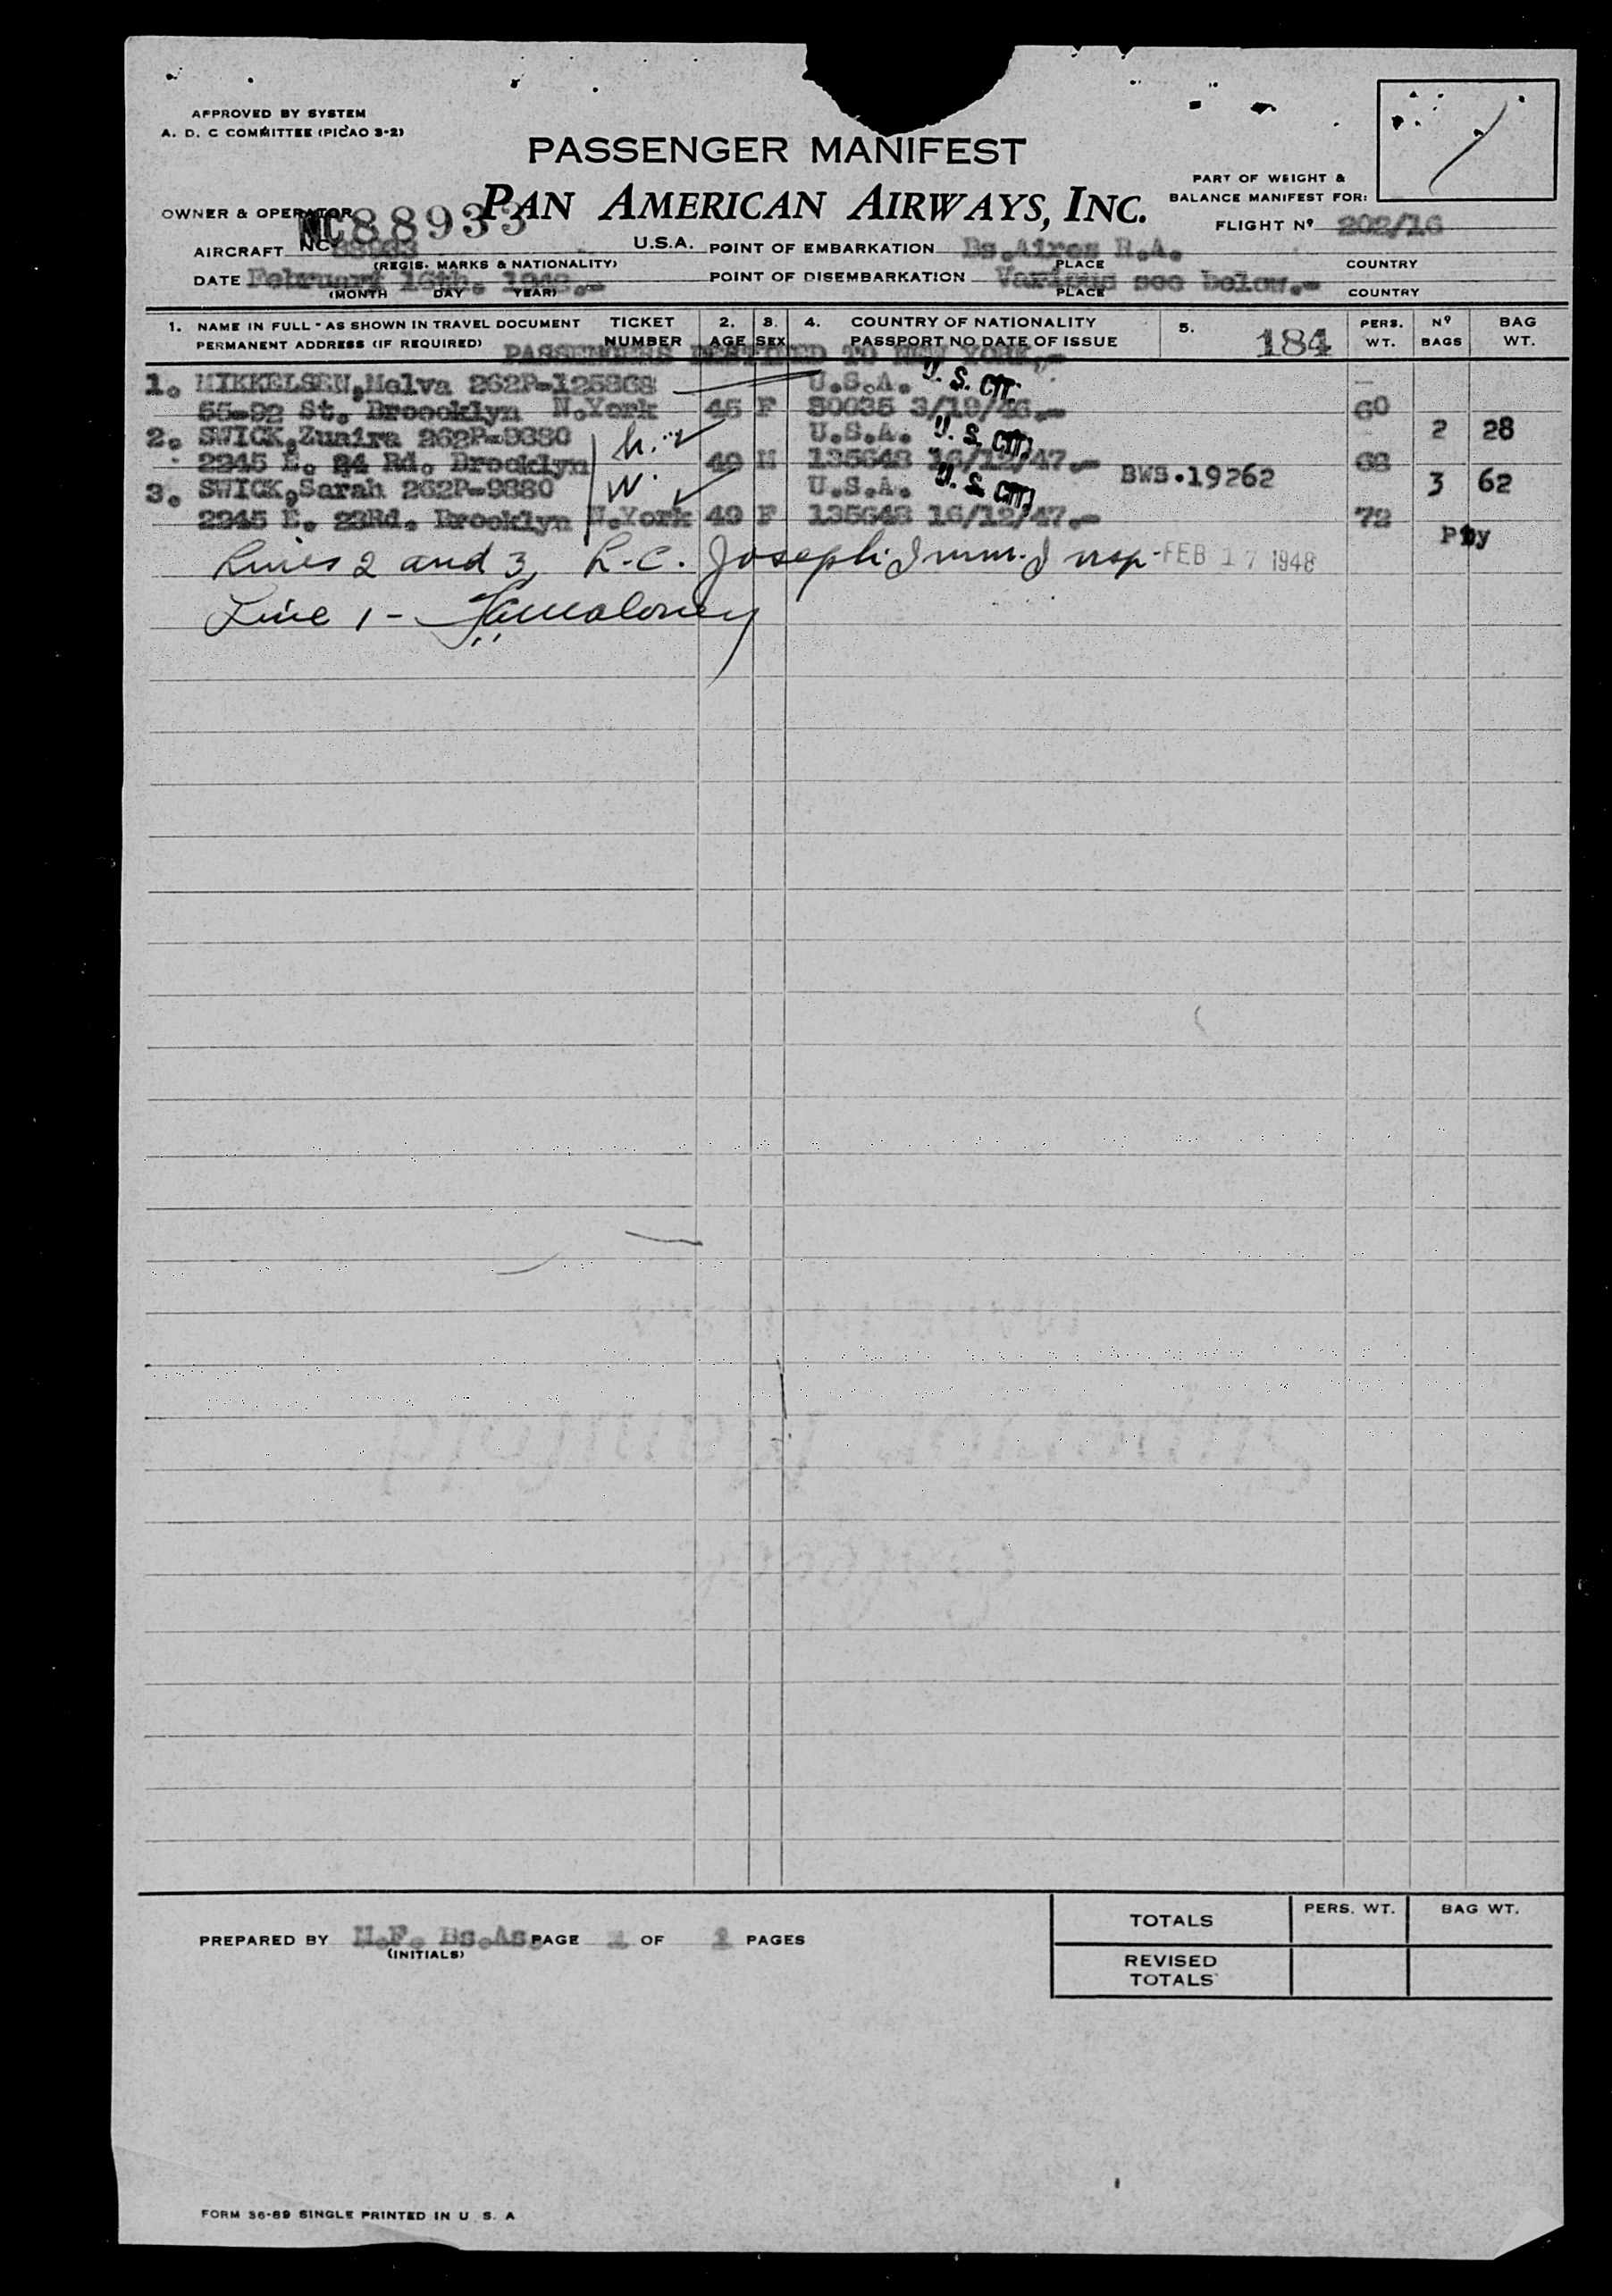 APPROVED BY SYSTEM
A. D. C COMMITTEE (PICAO 3-2)
PASSENGER MANIFEST
PAN AMERICAN AIRWAYS, INC.
PART OF WEIGHT &
BALANCE MANIFEST FOR:
OWNER & OPERATOR
NC88933
FLIGHT Nº 202/16
AIRCRAFT NC 88933 U.S.A. POINT OF EMBARKATION Bs.Aires R.A.
(REGIS. MARKS & NATIONALITY) PLACE COUNTRY
DATE February 16th. 1948.- POINT OF DISEMBARKATION Various see below.-
(MONTH DAY YEAR) PLACE COUNTRY
1. NAME IN FULL - AS SHOWN IN TRAVEL DOCUMENT TICKET 2. 3. 4. COUNTRY OF NATIONALITY 5. 184 PERS. Nº BAG
PERMANENT ADDRESS (IF REQUIRED) NUMBER AGE SEX PASSPORT NO DATE OF ISSUE WT. BAGS WT.
PASSENGERS DESTINED TO NEW YORK,-
1. MIKKELSEN,Melva 262P-125868 U.S.A. U. S. CIT.
55-92 St. Broocklyn N.York 45 F 80035 3/19/46.- 60
2. SWICK,Zunira 262P-9880 h. U.S.A. U. S. CIT. 2 28
2245 E. 24 Rd. Brocklyn 49 M 135648 16/12/47.- BWS.19262 68
3. SWICK,Sarah 262P-9880 W. U.S.A. U. S. CIT. 3 62
2245 E. 23Rd. Brocklyn N.York 49 F 135648 16/12/47.- 72
Pby
Lines 2 and 3, R.C. Joseph Imm. Insp. FEB 17 1948
Line 1 -
PREPARED BY M.F. Bs.As. PAGE OF PAGES
(INITIALS)
TOTALS PERS. WT. BAG WT.
REVISED
TOTALS
FORM 36-89 SINGLE PRINTED IN U. S. A